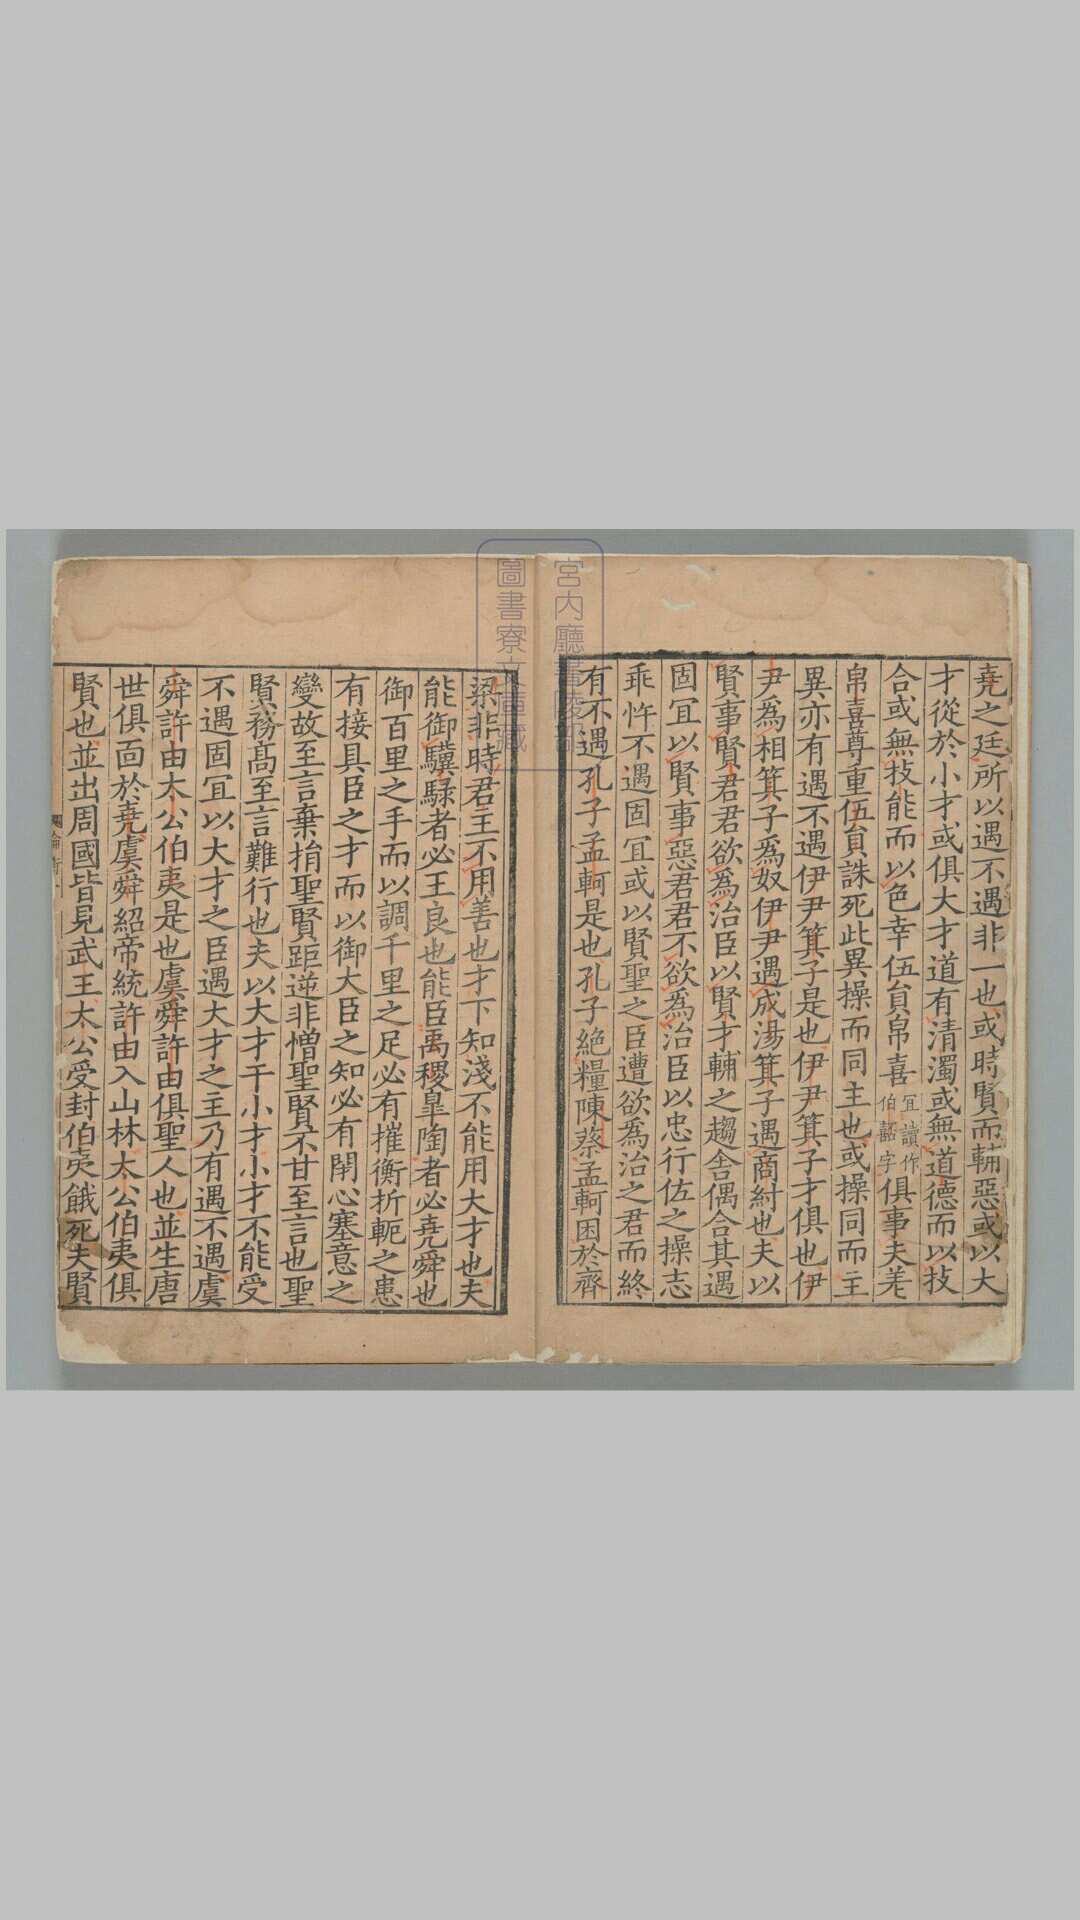 堯之廷所以遇不遇非一也或時賢而輔惡或以大
才從於小才或俱大才道有清濁或無道德而以技
合或無技能而以色幸伍員帛喜宜讀作伯嚭字俱事夫差
帛喜尊重伍員誅死此異操而同主也或操同而主
異亦有遇不遇伊尹箕子是也伊尹箕子才俱也伊
尹為相箕子為奴伊尹遇成湯箕子遇商紂也夫以
賢事賢君君欲為治臣以賢才輔之趨舍偶合其遇
固宜以賢事惡君君不欲為治臣以忠行佐之操志
乖忤不遇固宜或以賢聖之臣遭欲為治之君而終
有不遇孔子孟軻是也孔子絕糧陳蔡孟軻困於齊
梁非時君主不用善也才下知淺不能用大才也夫
能御驥騄者必王良也能臣禹稷皐陶者必堯舜也
御百里之手而以調千里之足必有摧衡折軛之患
有接具臣之才而以御大臣之知必有閉心塞意之
變故至言棄捐聖賢距逆非憎聖賢不甘至言也聖
賢務髙至言難行也夫以大才干小才小才不能受
不遇固宜以大才之臣遇大才之主乃有遇不遇虞
舜許由太公伯夷是也虞舜許由俱聖人也並生唐
世俱面於堯虞舜紹帝統許由入山林太公伯夷俱
賢也並出周國皆見武王太公受封伯夷餓死夫賢
宮內廳書陵部
圖書寮文庫藏